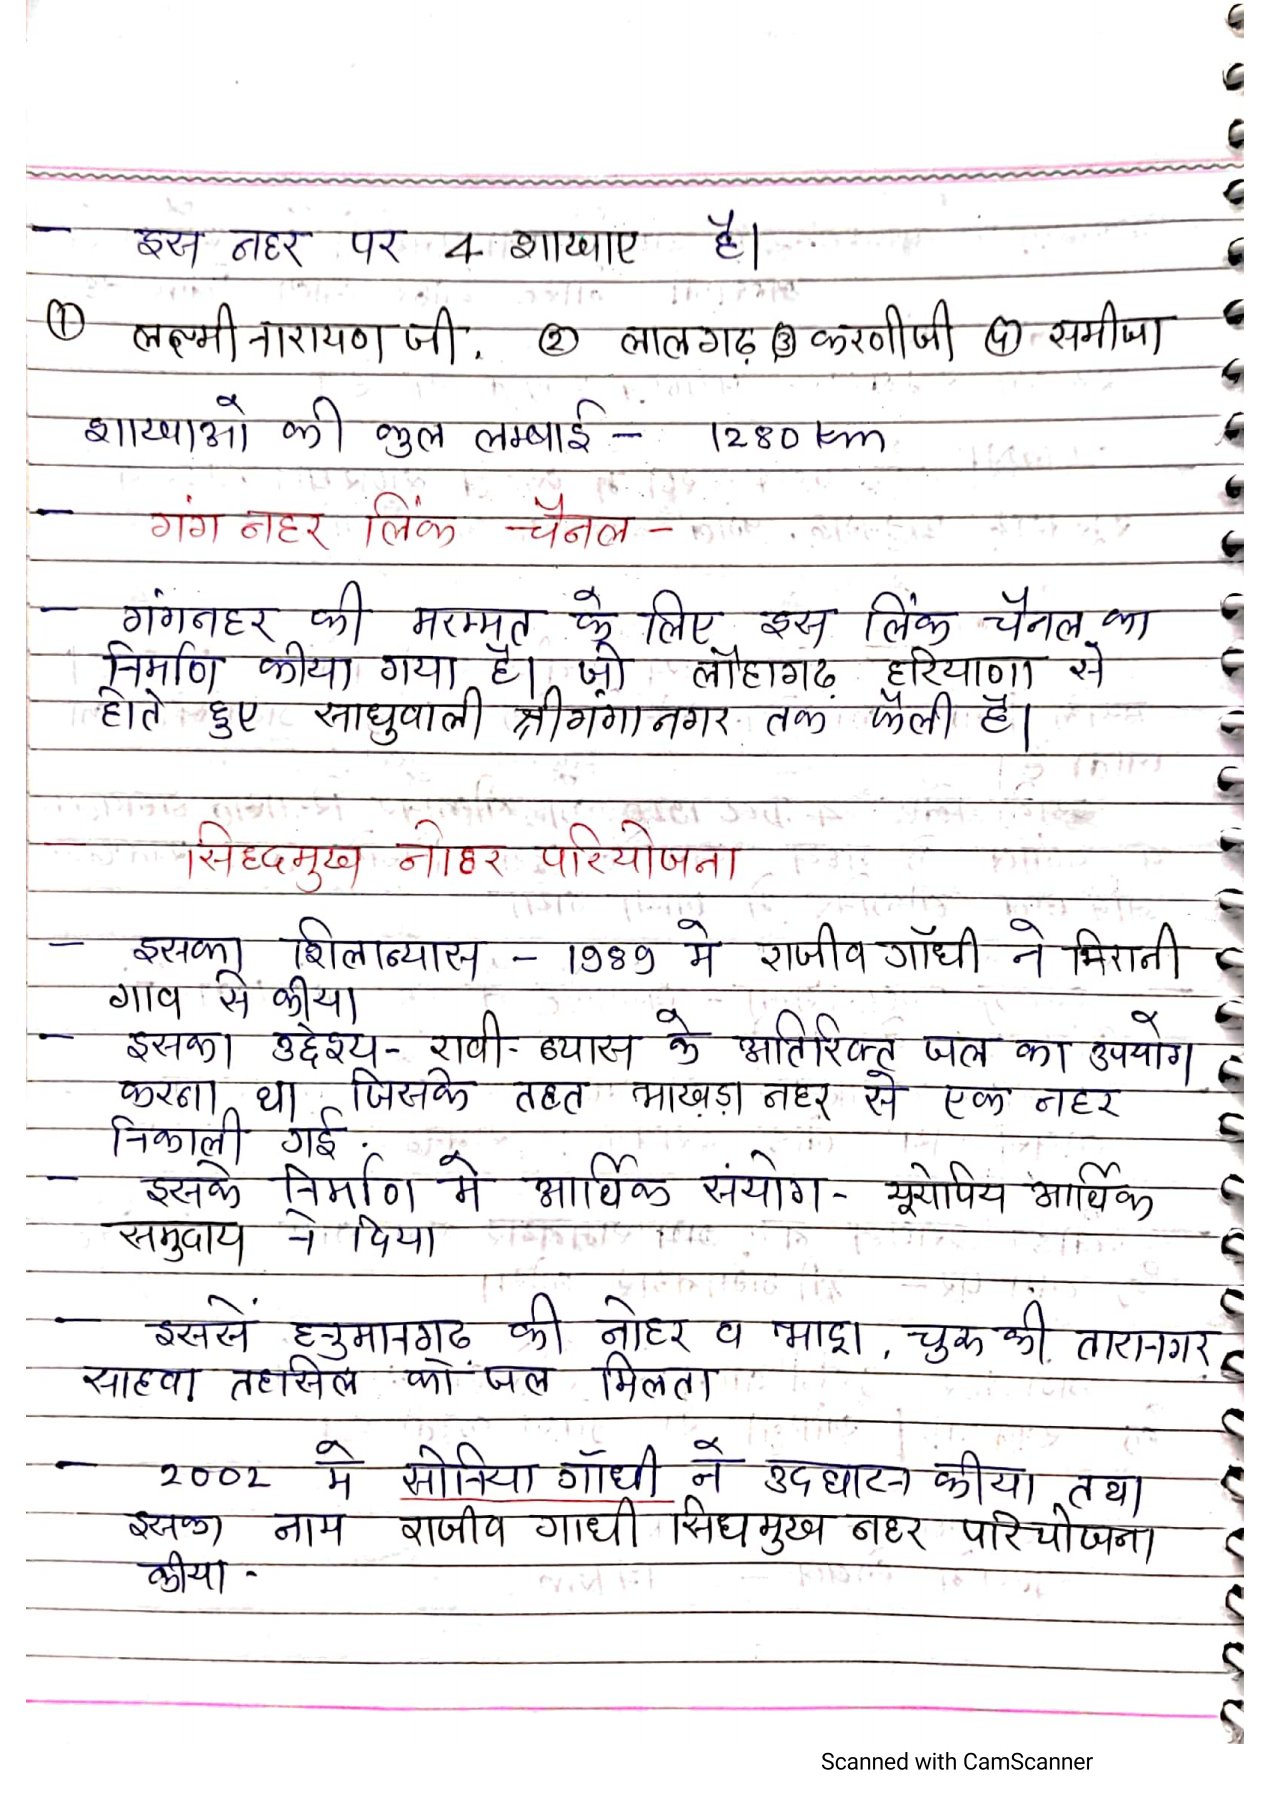 - इस नहर पर 4 शाखाए है।
① लक्ष्मीनारायण जी. ② लालगढ़ ③ करणीजी ④ समीजा
शाखाओं की कुल लम्बाई - 1280 km
- गंग नहर लिंक चैनल -
- गंगनहर की मरम्मत के लिए इस लिंक चैनल का
निर्माण कीया गया है। जो लौहागढ़ हरियाणा से
होते हुए साधुवाली श्रीगंगानगर तक फैली है।
- सिद्दमुख नोहर परियोजना
- इसका शिलान्यास - 1989 मे राजीव गाँधी ने भिरानी
गाव से कीया
- इसका उद्देश्य - रावी - व्यास के अतिरिक्त जल का उपयोग
करना था जिसके तहत भाखड़ा नहर से एक नहर
निकाली गई.
- इसके निर्माण मे आर्थिक संयोग - यूरोपिय आर्थिक
समुदाय ने दिया
- इससें हनुमानगढ की नोहर व भाद्रा, चुरू की तारानगर
साहवा तहसिल कों जल मिलता
- 2002 मे सोनिया गाँधी ने उदघाटन कीया तथा
इसका नाम राजीव गाधी सिधमुख नहर परियोजना
कीया -
Scanned with CamScanner